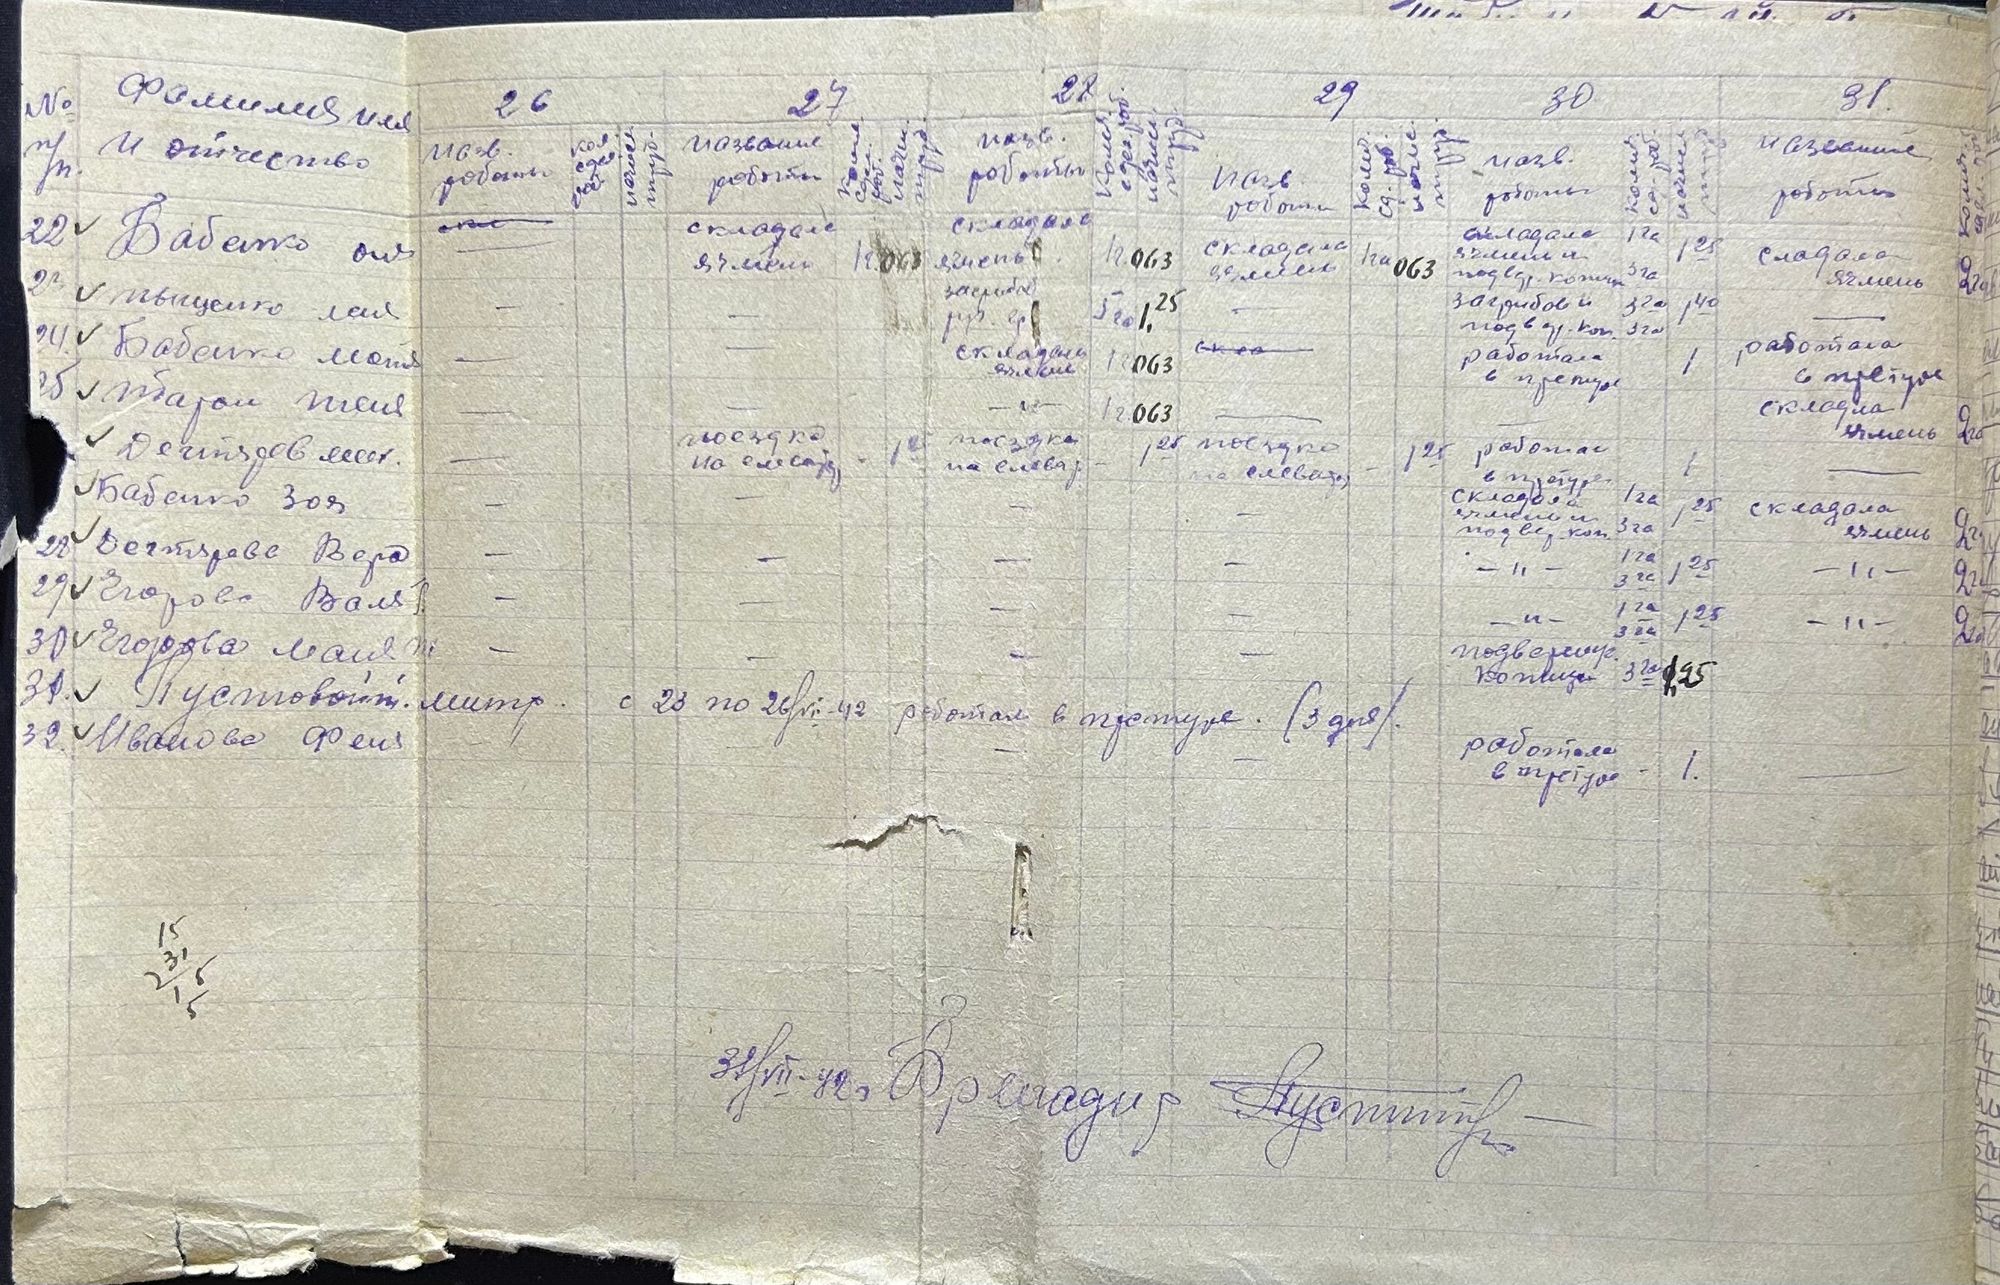 № п/п. Фамилия имя и отчество 26 27 28 29 30 31.
назв. работы начисл. труд. название работы колич. сдел. раб. начис. труд. назв. работы колич. сдел. раб. начисл. труд. назв работы колич. сд. раб. начис. труд. назв. работы колич. сд. раб. начисл. труд название работы колич. сдел. раб
22 Бабенко оля — складала ячмень 1г. 063 складала ячмень 1г. 063 складала ячмень 1га 063 складала ячмень и подвер. копиц 1га 3га 1 25 сладала ячмень 2га
23 мая — — 5га 1,25 — загрибов и подвер. коп. 3га 3га 1,40 —
24. Бабенко мотя — — складала ячмень 1г. 063 работала в претуре 1 работала в претуре
25 Таран женя — — —"— 1г. 063 — — складла ячмень 2га
Дегтярев мих. — поездка на елеватор - 1 25 поездка на елеват. - 1 25 поездка на елеватор - 1 25 работал в претуре 1 —
Бабенко Зоя — — — — складала ячмень и подвер. коп. 1га 3га 1 25 складала ячмень 2га
28 Дегтярева Вера — — — — —"— 1га 3га 1 25 —"— 2га
29 Егорова Валя — — — — —"— 1га 3га 1 25 —"— 2га
30 Егорова маня — — — подвернул. копици 3га 1,25
31. Пустовойт. митр. с 23 по 26/VII-42 работал в претуре. (3 дня).
32. Иванова Феня — — — — работала в претуре - 1. —
15
31
31/VII-42г Бригадир